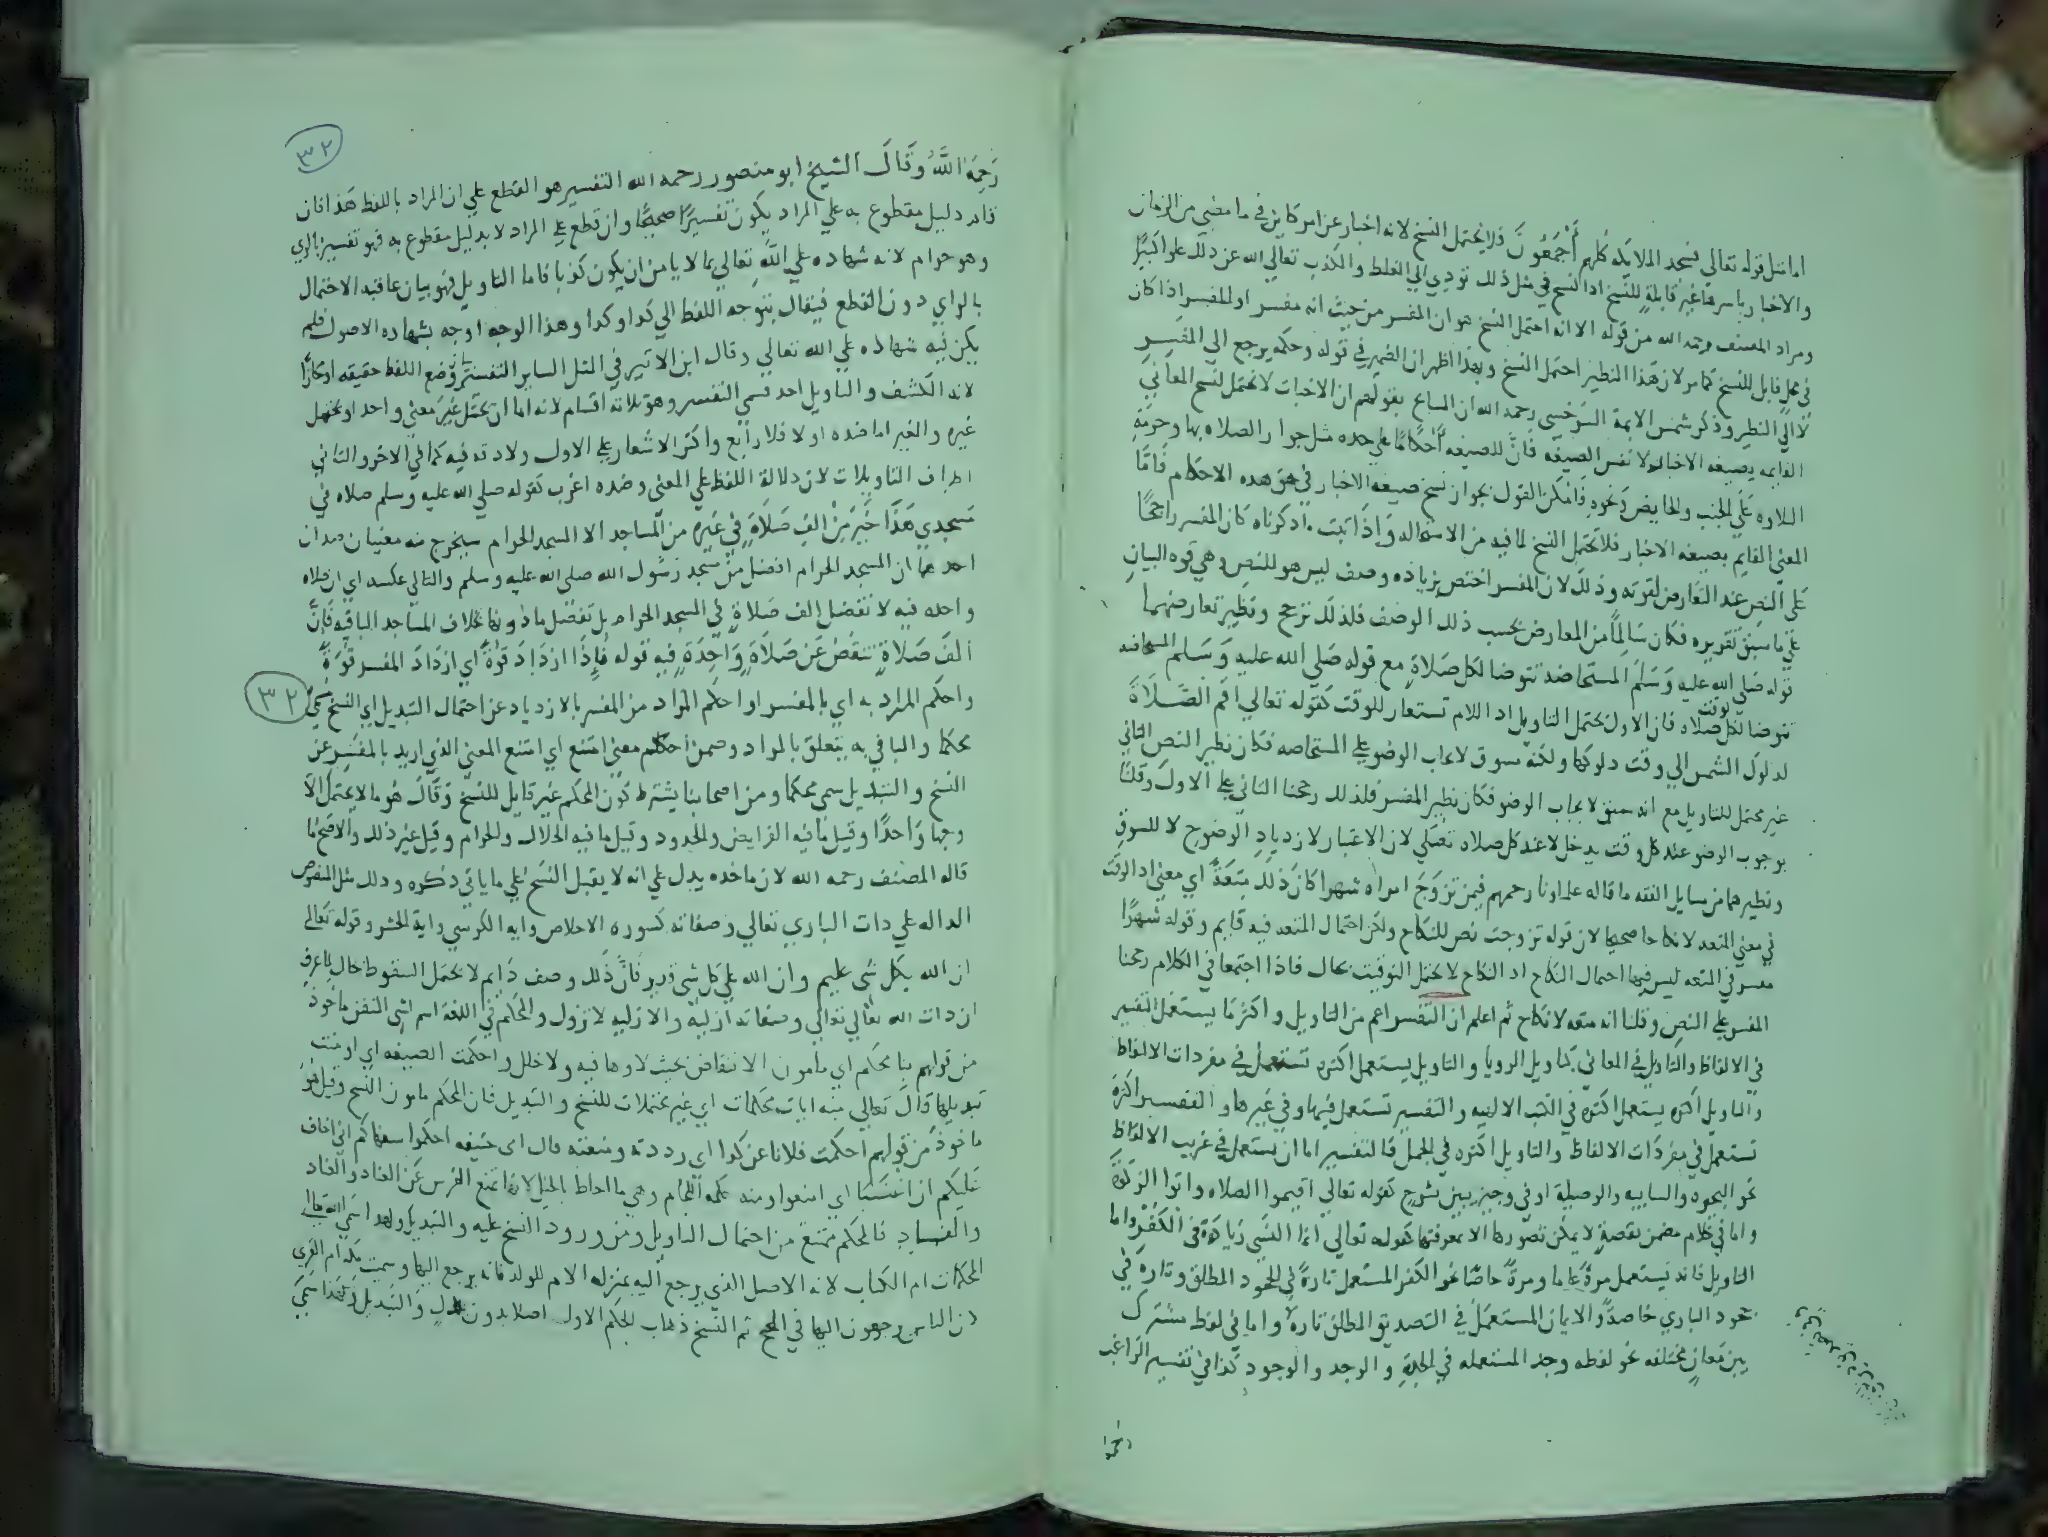 اما مثل قوله تعالي فسجد الملائكه كلهم أجمعون فلا يحتمل النسخ لانه اخبار عن امر كاين في ما مضي من الزمان
والاخبار باسرها غير قابلة للنسخ اذ النسخ في مثل ذلك تودي الي الغلط والكذب تعالي الله عن ذلك علوا كبيرا
ومراد المصنف رحمه الله من قوله الا انه احتمل النسخ هو ان المفسر من حيث انه مفسر او المفسر اذا كان
في محل قابل للنسخ كما مر لان هذا النظير احتمل النسخ وبهذا ظهر ان الضمير في قوله وحكمه يرجع الي المفسر
لا الي النظير وذكر شمس الايمة السرخسي رحمه الله ان السماع بقولهم ان الاخبار لا تحتمل نسخ المعاني
القايمه بصيغه الاخبار لا نفس الصيغه فان للصيغه أحكاما علي حده مثل جواز الصلاه بها وحرمة
التلاوه علي الجنب والحايض ونحوه فامكن القول بجواز نسخ صيغه الاخبار في حق هذه الاحكام فاما
المعني القايم بصيغه الاخبار فلا يحتمل النسخ لما فيه من الاستحاله واذا ثبت ما ذكرناه كان المفسر راجحا
علي النص عند التعارض لقوته وذلك لان المفسر اختص بزياده وصف ليس هو للنص وهي قوه البيان
علي ما سبق تقريره فكان سالما من المعارض بحسب ذلك الوصف فلذلك ترجح ونظير تعارضهما
قوله صلي الله عليه وسلم المستحاضه تتوضا لكل صلاة مع قوله صلي الله عليه وسلم المستحاضه
تتوضا لوقت كل صلاه فان الاول يحتمل التاويل اذ اللام تستعار للوقت كقوله تعالي اقم الصلاة
لدلوك الشمس اي وقت دلوكها ولكنه مسوق لايجاب الوضو علي المستحاضه فكان نظير النص الثاني
غير محتمل للتاويل مع انه سيق لايجاب الوضو فكان نظير المفسر فلذلك رجحنا الثاني علي الاول وقلنا
بوجوب الوضو عند كل وقت يدخل لا عند كل صلاه تصلي لان الاعتبار لازدياد الوضوح لا للسوق
ونظيرهما من مسايل الفقه ما قاله علماونا رحمهم فيمن تزوج امراه شهرا كان ذلك متعة اي معني اذ الوقت
في معني المتعه لا نكاحا صحيحا لان قوله تزوجت نص للنكاح ولكن احتمال المتعه فيه قايم وقوله شهرا
مفسر في المتعه ليس فيها احتمال النكاح اذ النكاح لا يحتمل التوقيت بحال فاذا اجتمعا في الكلام رجحنا
المفسر علي النص وقلنا انه متعه لا نكاح ثم اعلم ان التفسير اعم من التاويل واكثر ما يستعمل التفسير
في الالفاظ والتاويل في المعاني كتاويل الرويا والتاويل يستعمل اكثره تستعمل في مفردات الالفاظ
والتاويل اكثره يستعمل اكثره في الكتب الالهيه والتفسير تستعمل فيها وفي غيرها والتفسير اكثره
تستعمل في مفردات الالفاظ والتاويل اكثره في الجمل فالتفسير اما ان يستعمل في غريب الالفاظ
نحو البحيره والسايبه والوصيلة او في وجيز يبين بشرح كقوله تعالي اقيموا الصلاه واتوا الزكوة
واما في كلام مضمن بقصة لا يمكن تصورها الا بمعرفتها كقوله تعالي انما النسي زيادة في الكفر واما
التاويل فانه يستعمل مرة عاما ومرة خاصا نحو الكفر المستعمل تارة في الجحود المطلق وتارة في
جحود الباري خاصة والايمان المستعمل في التصديق المطلق تارة واما في لفظ مشترك
بين معان مختلفه نحو لفظه وجد المستعمله في الجدة والوجد والوجود كذا في تفسير الراغب
٣٢
رحمه الله وقال الشيخ ابو منصور رحمه الله التفسير هو القطع علي ان المراد باللفظ هذا فان
قام دليل مقطوع به علي المراد يكون تفسيرا صحيحا وان قطع علي المراد لا بدليل مقطوع به فهو تفسير بالراي
وهو حرام لانه شهاده علي الله تعالي بما لا يامن ان يكون كذبا فاما التاويل فهو بيان عاقبه الاحتمال
بالراي دون القطع فيقال يتوجه اللفظ الي كذا وكذا وهذا الوجه اوجه بشهاده الاصول فلم
يكن فيه شهاده علي الله تعالي وقال ابن الاثير في المثل الساير التفسير بيان وضع اللفظ حقيقه او مجازا
لانه الكشف والتاويل احد قسمي التفسير وهو ثلاثه اقسام لانه اما ان يحتمل غير معني واحد او يحتمل
غيره والغير اما ضده او لا فلا رابع واكثر الاشعار علي الاول ولا دقه فيه كما في الاخر والثاني
اطراف التاويلات لان دلالة اللفظ علي المعني وضده اغرب كقوله صلي الله عليه وسلم صلاه في
مسجدي هذا خير من الف صلاة في غيره من المساجد الا المسجد الحرام سيخرج منه معنيان ضدان
احدهما ان المسجد الحرام افضل من مسجد رسول الله صلي الله عليه وسلم والثاني عكسه اي ان صلاه
واحده فيه لا تفضل الف صلاة في المسجد الحرام بل تفضل ما دونها بخلاف المساجد الباقيه فان
الف صلاة تنقص عن صلاة واحدة فيه قوله فاذا ازداد قوة اي ازداد المفسر قوة
٣٢
واحكم المراد به اي بالمفسر او احكم المراد من المفسر بالازدياد عن احتمال التبديل اي النسخ سمي
محكما والبا في به يتعلق بالمراد وضمن احكم معني امتنع اي امتنع المعني الذي اريد بالمفسر عن
النسخ والتبديل سمي محكما ومن اصحابنا يشترط كون المحكم غير قابل للنسخ وقال هو ما لا يحتمل الا
وجها واحدا وقيل ما فيه الفرايض والحدود وقيل ما فيه الحلال والحرام وقيل غير ذلك والاصح ما
قاله المصنف رحمه الله لان ماخذه يدل علي انه لا يقبل النسخ علي ما ياتي ذكره وذلك مثل النصوص
الداله علي ذات الباري تعالي وصفاته كسوره الاخلاص وايه الكرسي واية الحشر وقوله تعالي
ان الله بكل شي عليم وان الله علي كل شي قدير فان ذلك وصف دايم لا يحتمل السقوط بحال لما عرف
ان ذات الله تعالي وصفاته ازليه والازليه لا تزول والمحكم في اللغة اسم لشي اتقن ماخوذ
من قولهم بنا محكم اي مامون الانتقاض بحيث لا وها فيه ولا خلل واحكمت الصيغه اي اومنت
تبديلها قال تعالي منه ايات محكمات اي غير محتملات للنسخ والتبديل فان المحكم مامون النسخ وقيل هو
ماخوذ من قولهم احكمت فلانا عن كذا اي رددته ومنعته قال ابي حنيفه احكموا سفهاكم اني اخاف
عليكم ان اغضبا اي امنعوا ومنه حكمه اللجام وهي ما احاط بالحنك لانها تمنع الفرس عن العناد والعناد
والفساد فالمحكم ممتنع من احتمال التاويل ومن ورود النسخ عليه والتبديل ولهذا سمي الله تعالي
المحكمات ام الكتاب لانه الاصل الذي يرجع اليه بمنزله الام للولد فانه يرجع اليها وسميت مكه ام القري
لان الناس يرجعون اليها في الحج ثم النسخ ذهاب الحكم الاول اصلا بدون بدل والتبديل